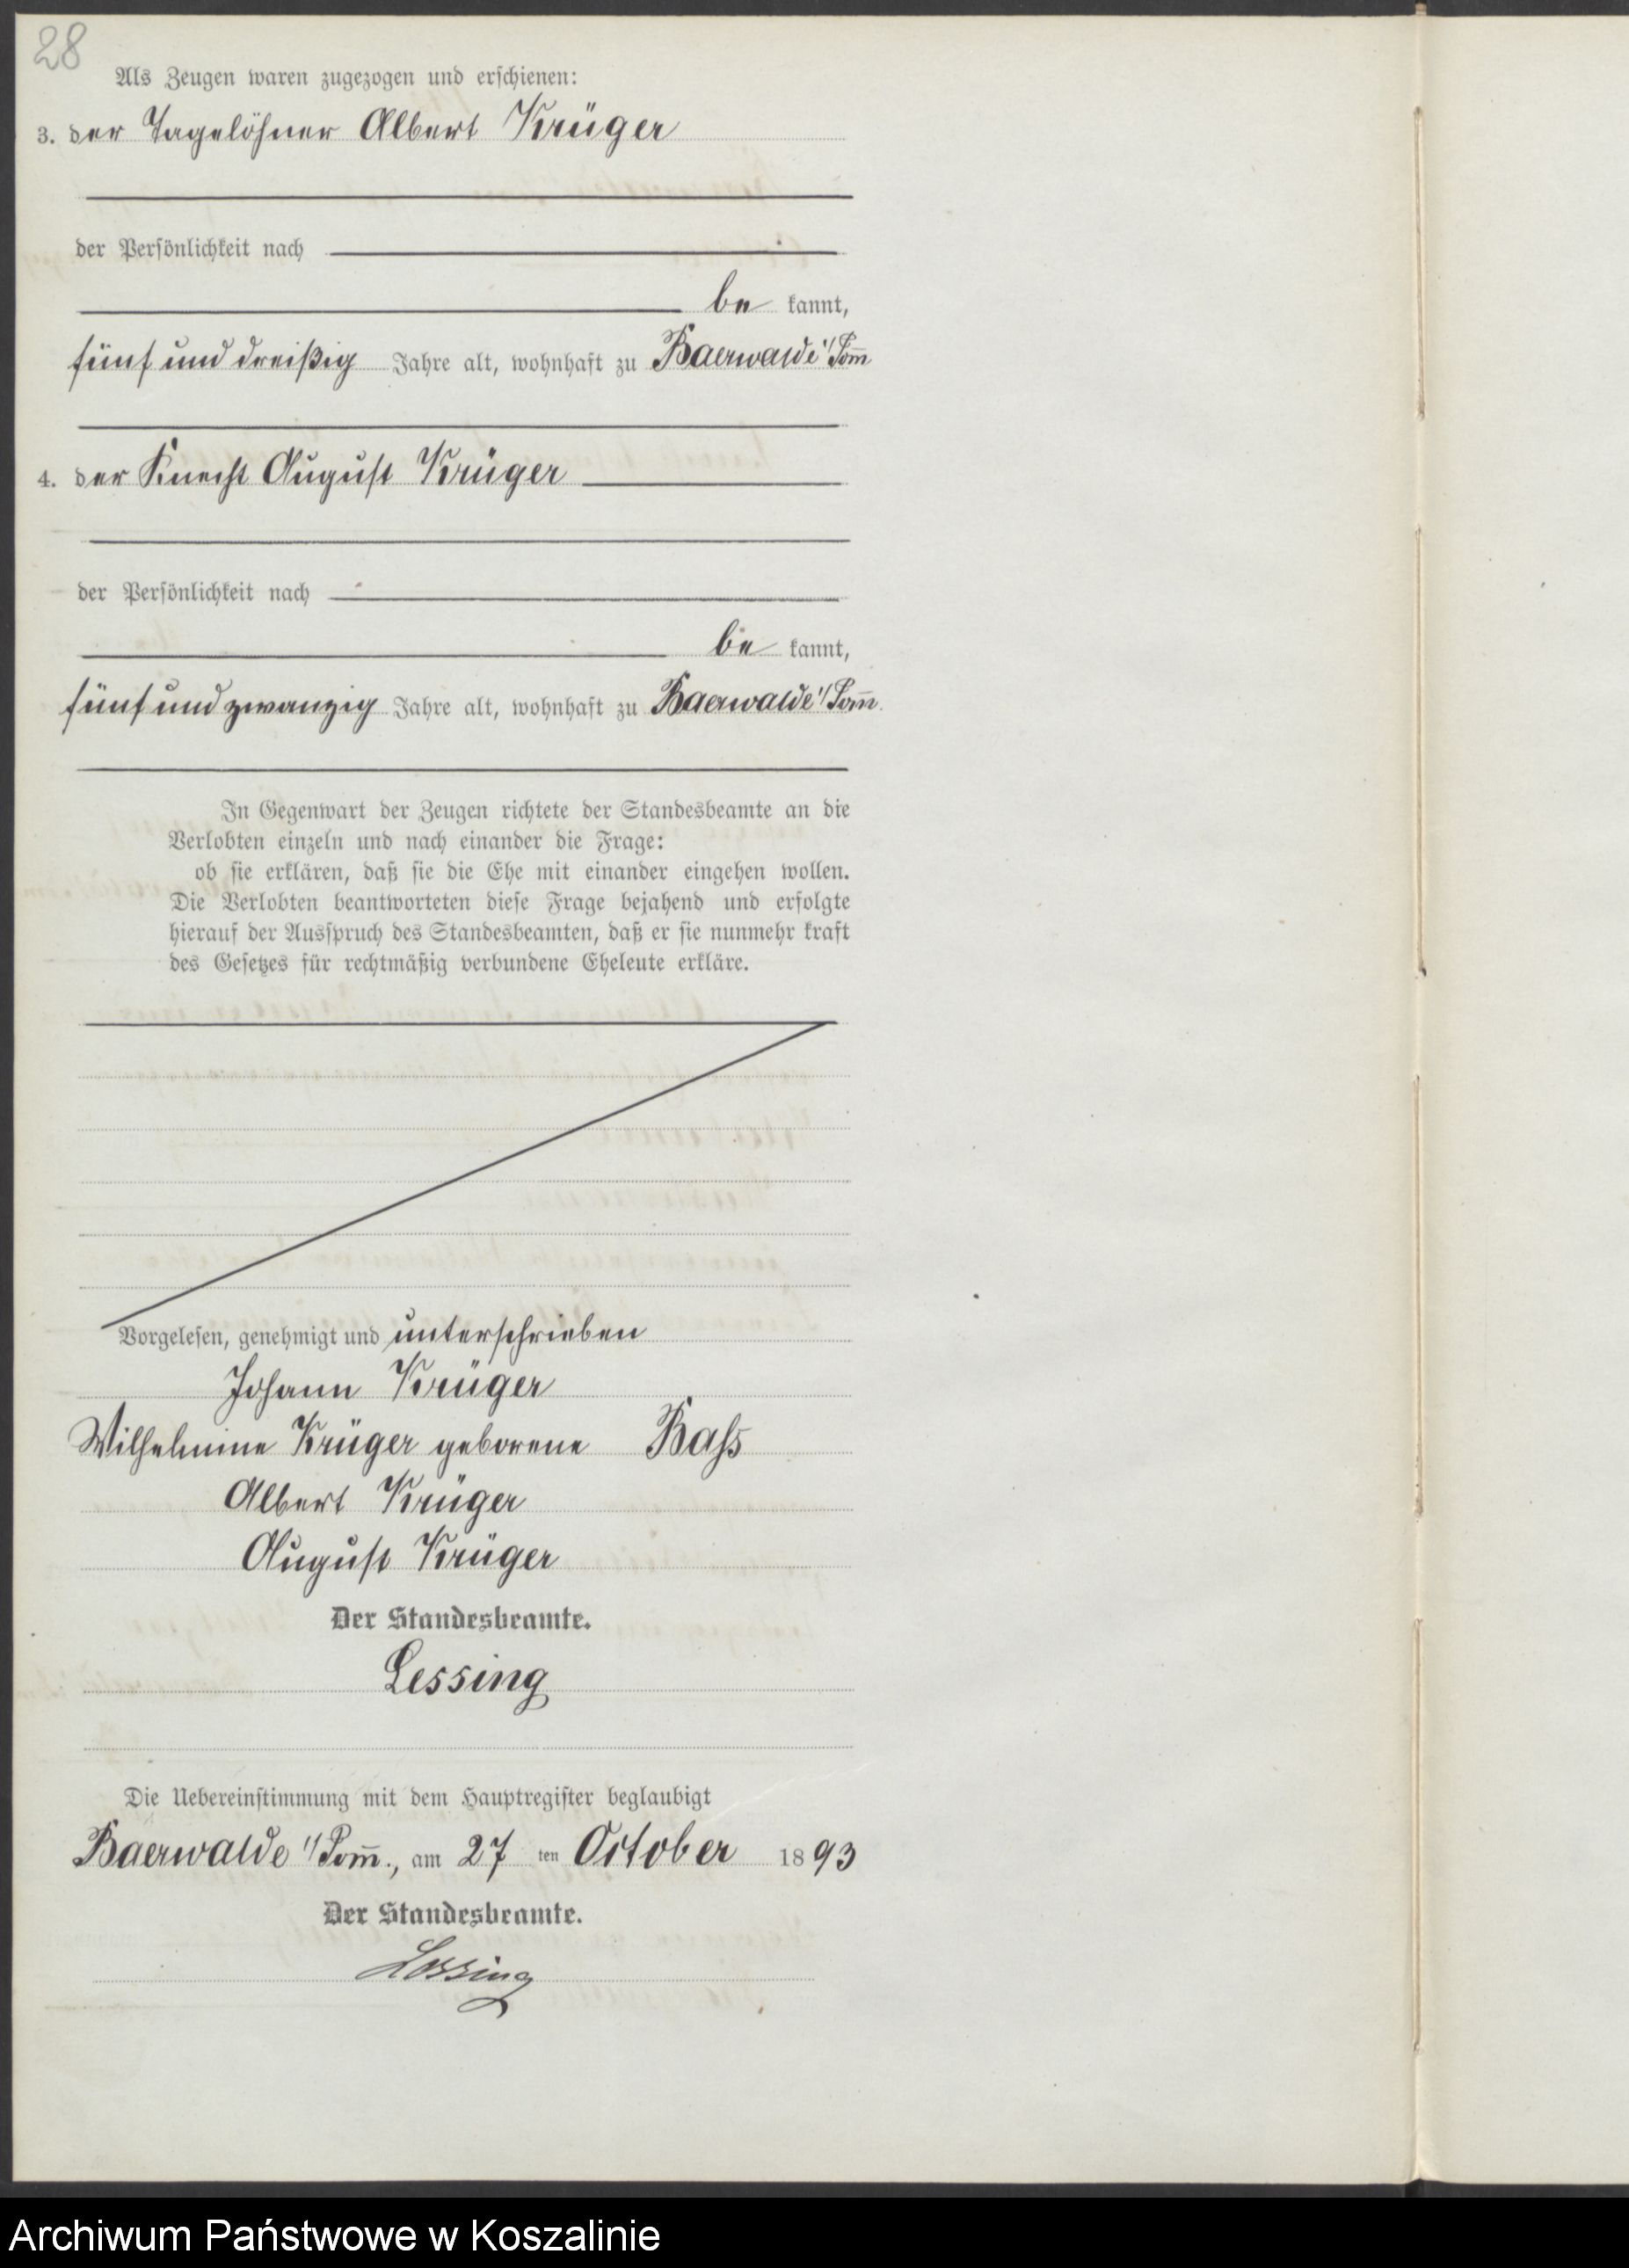 28
Als Zeugen waren zugezogen und erschienen:
3. der Tagelöhner Albert Krüger
der Persönlichkeit nach
be kannt,
fünf und dreißig Jahre alt, wohnhaft zu Baerwalde i/Pom̄
4. der Knecht August Krüger
der Persönlichkeit nach
be kannt,
fünf und zwanzig Jahre alt, wohnhaft zu Baerwalde i/Pom̄.
In Gegenwart der Zeugen richtete der Standesbeamte an die
Verlobten einzeln und nach einander die Frage:
ob sie erklären, daß sie die Ehe mit einander eingehen wollen.
Die Verlobten beantworteten diese Frage bejahend und erfolgte
hierauf der Ausspruch des Standesbeamten, daß er sie nunmehr kraft
des Gesetzes für rechtmäßig verbundene Eheleute erkläre.
Vorgelesen, genehmigt und unterschrieben
Johann Krüger
Wilhelmine Krüger geborene Bass
Albert Krüger
August Krüger
Der Standesbeamte.
Lessing
Die Uebereinstimmung mit dem Hauptregister beglaubigt
Baerwalde i/Pom̄., am 27 ten October 1893
Der Standesbeamte.
Lessing
Archiwum Państwowe w Koszalinie